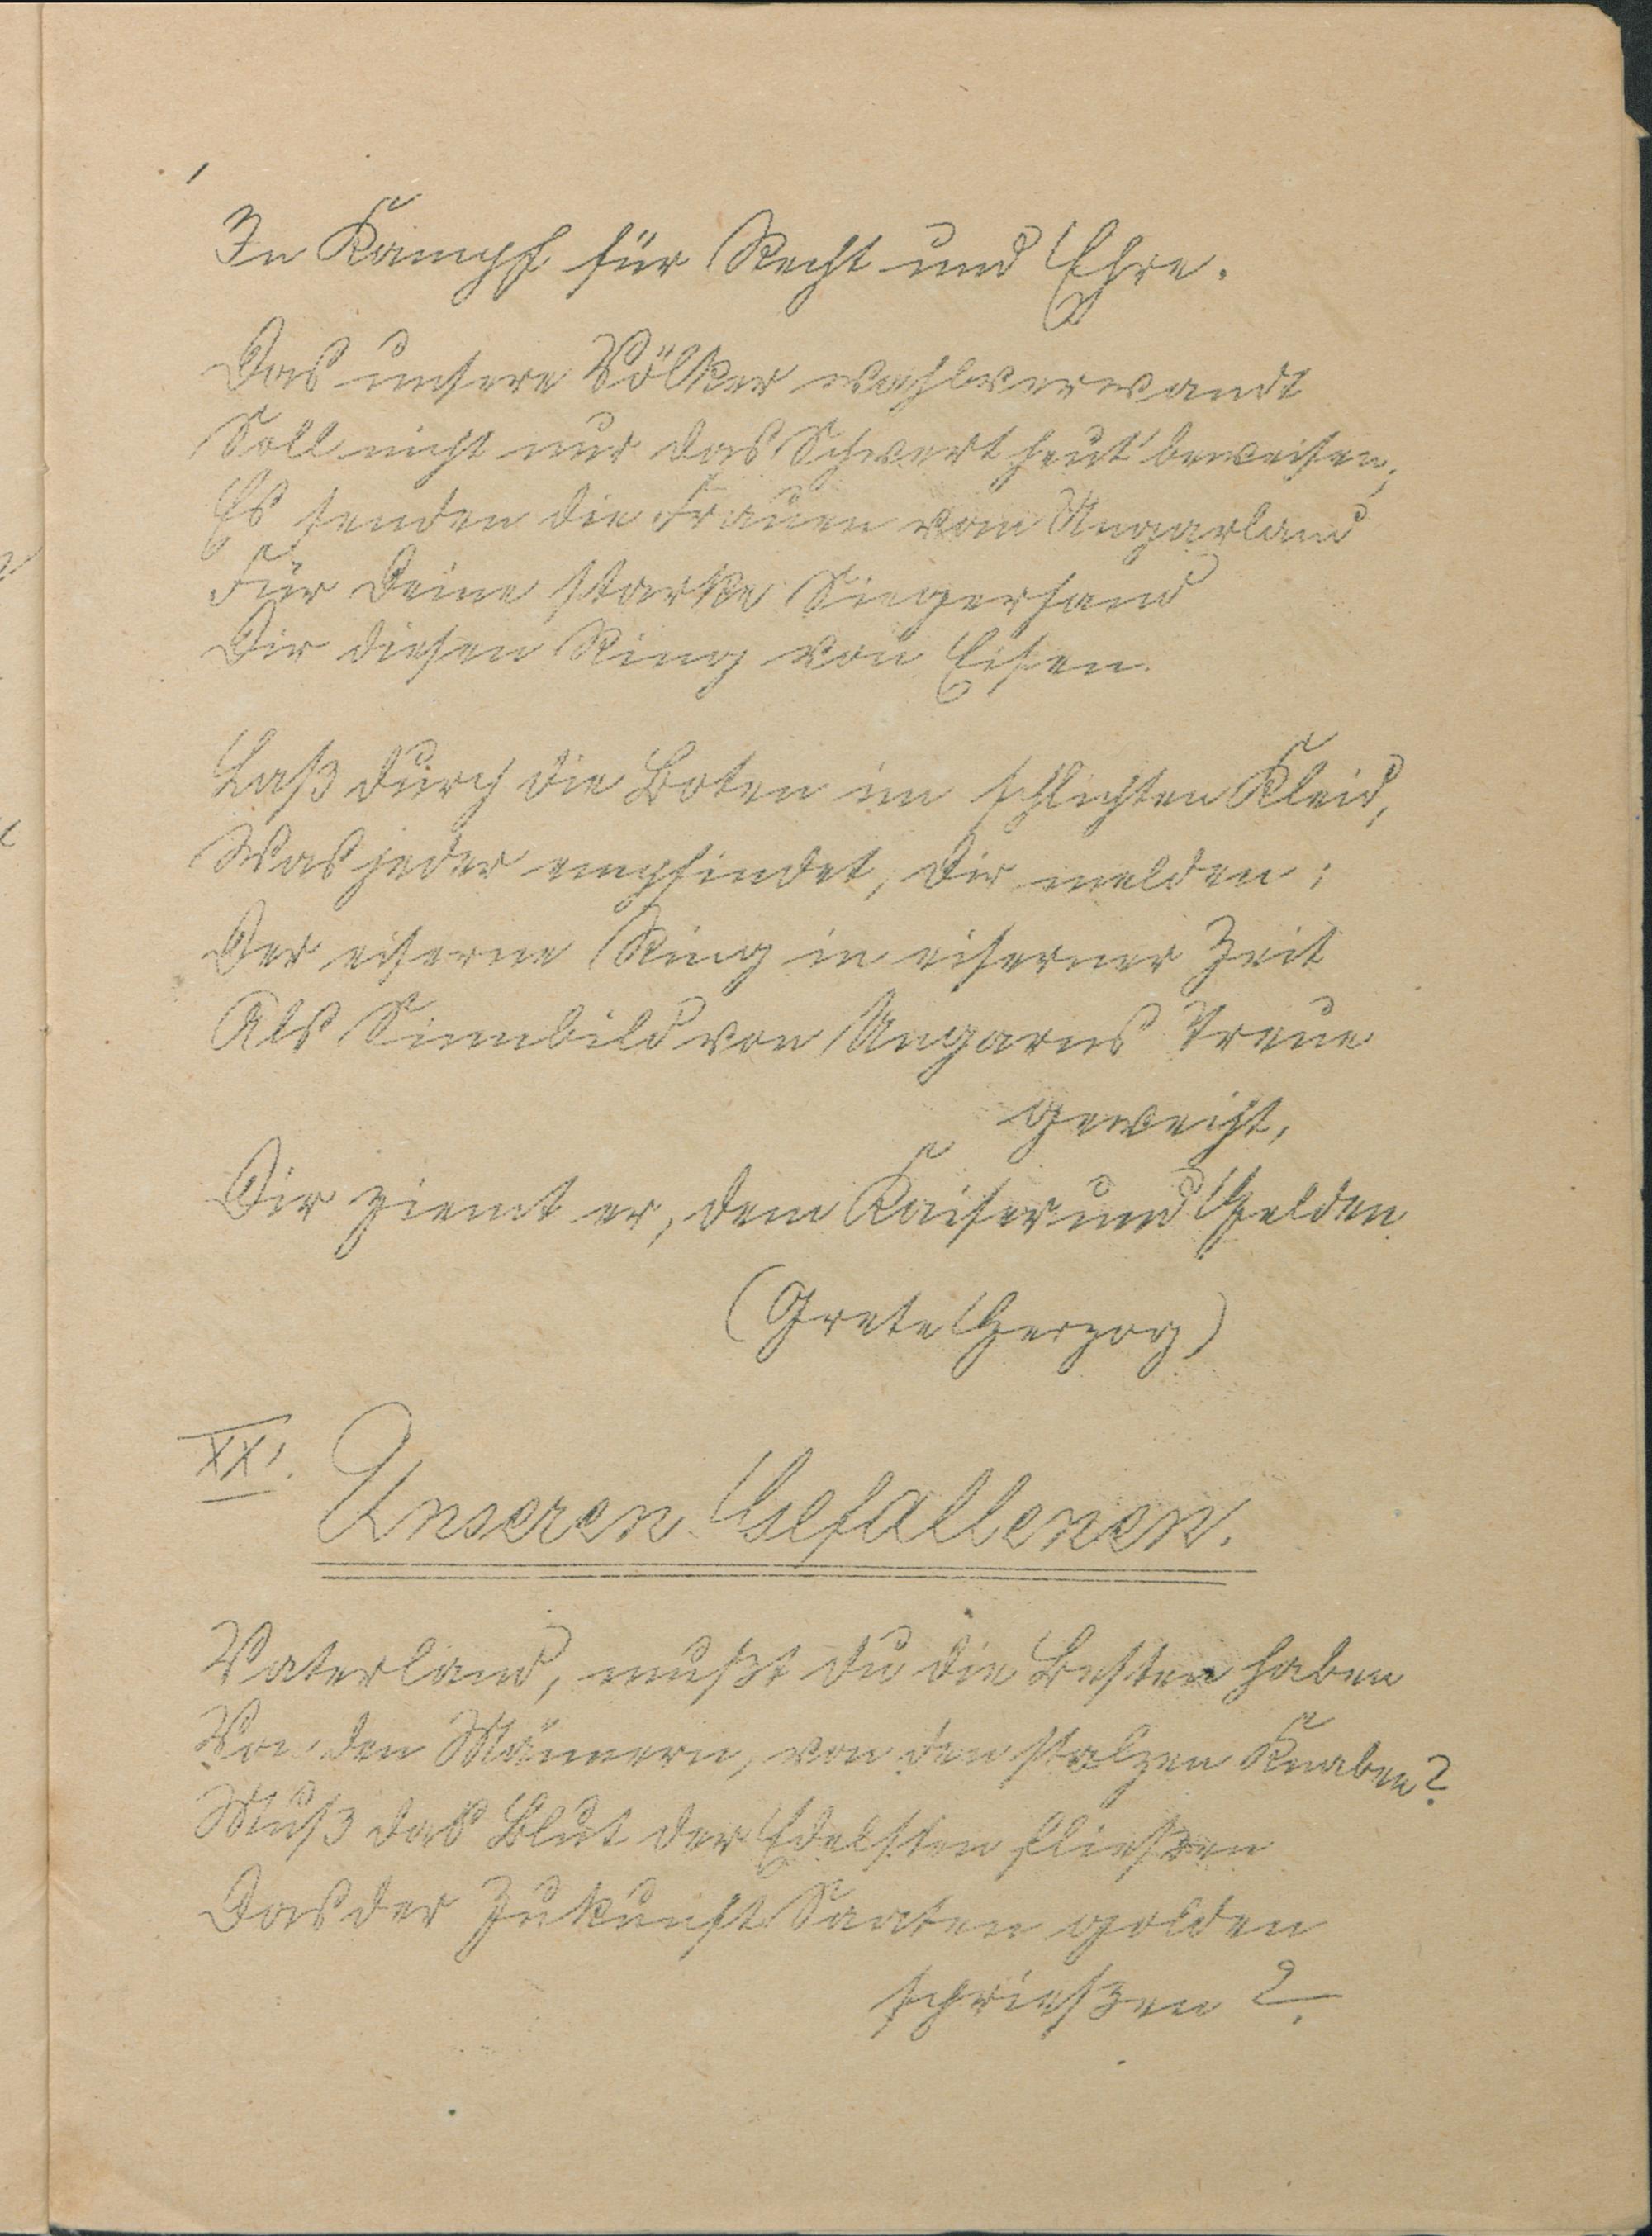 In Kampf für Recht und Ehre.
Das unsere Völker wahlverwandt
Soll nicht nur das Schwert heut' beweisen,
Es senden die Frauen vom Ungarland
Für Deine starke Siegerhand
Dir diesen Ring von Eisen.
Laß durch die Boten im schlichten Kleid,
Was jeder empfindet, Dir melden:
Der eiserne Ring in eiserner Zeit
Als Sinnbild von Ungarns Treue
geweiht,
Dir ziemt er, dem Kaiser und Helden.
(Grete Herzog)
XXI. Unseren Gefallenen.
Vaterland, mußt du die Besten haben
Von den Männern, von den stolzen Knaben?
Muß das Blut der Edelsten fließen
Das der Zukunft Saaten golden
schießen?